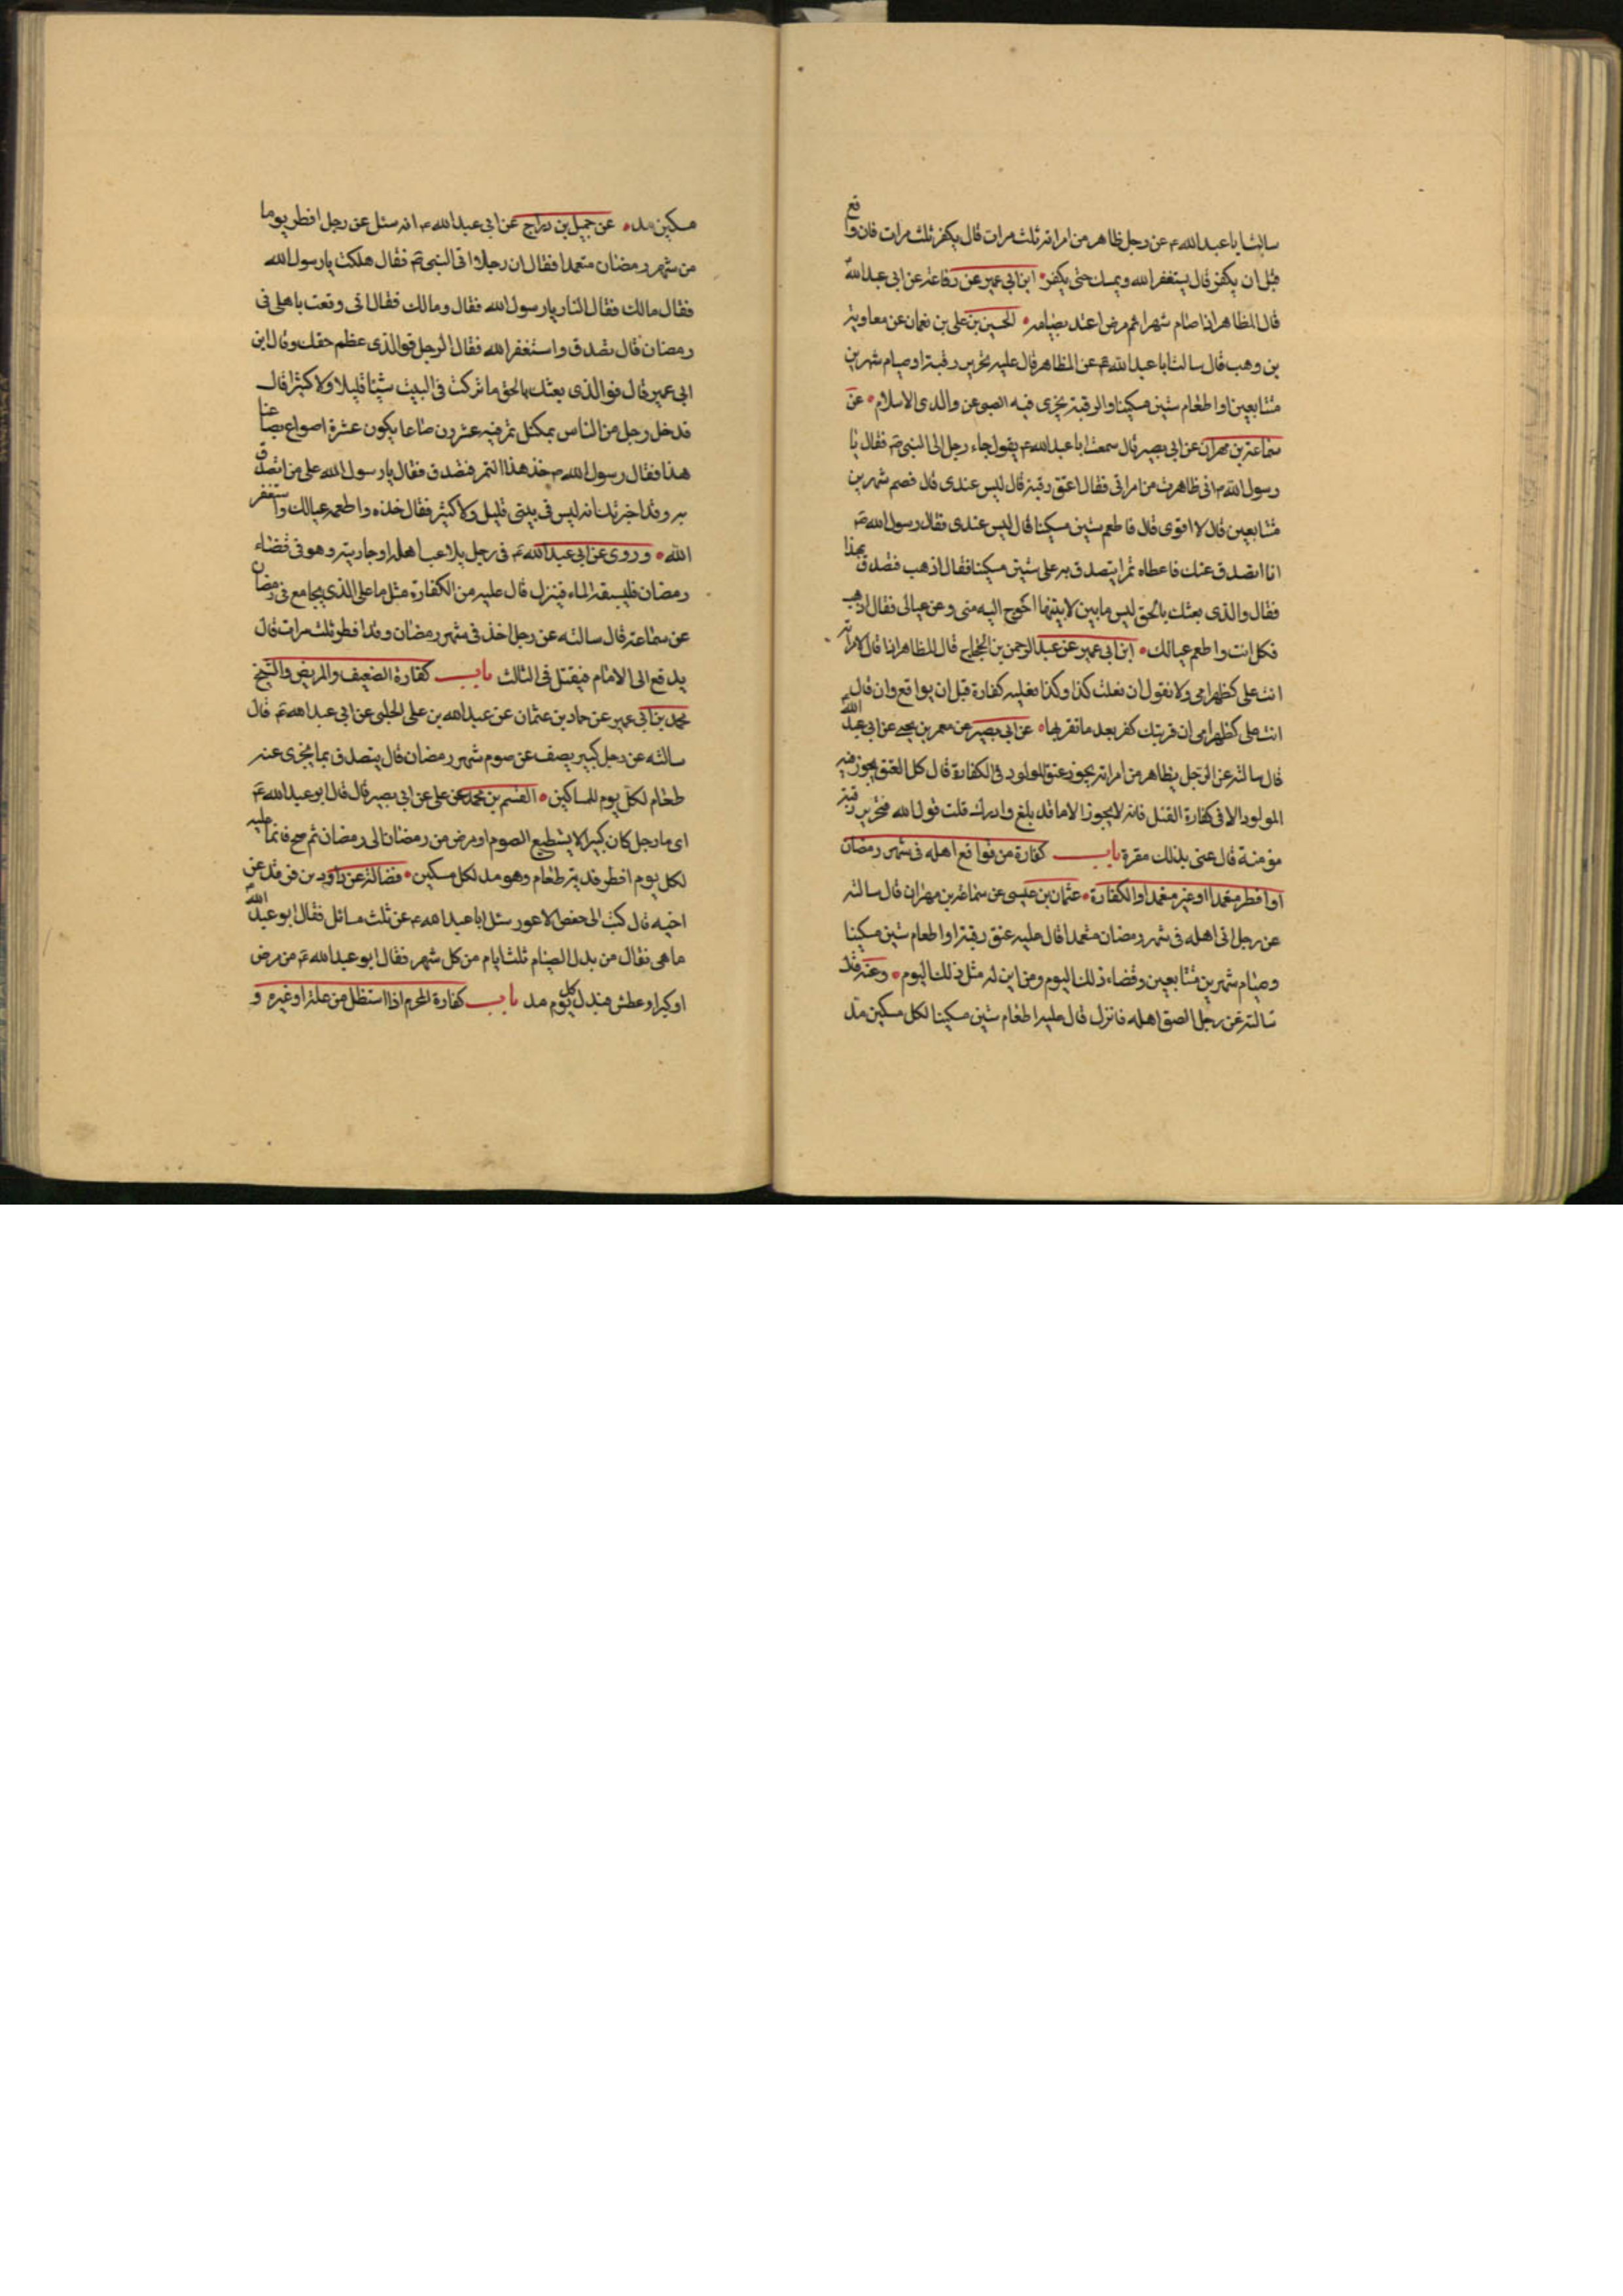 سالت ابا عبد الله ع عن رجل ظاهر من امراته ثلث مرات قال يكفر ثلث مرات فان واقع
قبل ان يكفر قال يستغفر الله ويمسك حتى يكفر ابن ابي عمير عن رفاعة عن ابي عبد الله
قال المظاهر اذا صام شهرا ثم مرض اعتد بصيامه الحسين بن على بن نعمان عن معاوية
بن وهب قال سالت ابا عبد الله ع عن المظاهر قال عليه تحرير رقبة او صيام شهرين
متتابعين او اطعام ستين مسكينا والرقبة يجزى فيه الصبى عن والذى الاسلام عن
سماعة بن مهران عن ابى بصير قال سمعت ابا عبد الله ع يقول جاء رجل الى النبى ص فقال يا
رسول الله ص انى ظاهرت من امراتى فقال اعتق رقبة قال ليس عندى قال فصم شهرين
متتابعين قال لا اقوى قال فاطعم ستين مسكينا قال ليس عندى فقال رسول الله ص
انا اتصدق عنك فاعطاه تمرا يتصدق به على ستين مسكينا فقال اذهب فتصدق بهذا
فقال والذى بعثك بالحق ليس ما بين لابيتها احوج اليه منى ومن عيالى فقال اذهب
فكل انت واطعم عيالك ابن ابى عمير عن عبد الرحمن بن الحجاج قال المظاهر اذا قال لامراته
انت على كظهر امى ولا نقول ان فعلت كذا وكذا فعليه كفارة قبل ان يواقع وان قال
انت على كظهر امى ان قربتك كفر بعد ما تقربها عن ابى بصير عن معمر بن يحيى عن ابى عبد الله
قال سالته عن الرجل يظاهر من امراته يجوز عتق المولود فى الكفارة قال كل العتق يجوز فيه
المولود الا فى كفارة القتل فانه لا يجوز الا ما قد بلغ وادرك قلت قول الله فتحرير رقبة
مؤمنة قال عنى بذلك مقرة باب كفارة من واقع اهله فى شهر رمضان
او افطر متعمدا او غير متعمد او الكفارة عثمان بن عيسى عن سماعة بن مهران قال سالته
عن رجل اتى اهله فى شهر رمضان متعمدا قال عليه عتق رقبة او اطعام ستين مسكينا
وصيام شهرين متتابعين وقضاء ذلك اليوم ومن اين له مثل ذلك اليوم وعنه قال
سالته عن رجل الصق اهله فانزل قال عليه اطعام ستين مسكينا لكل مسكين مد
مسكين مد عن جميل بن دراج عن ابى عبد الله ع انه سئل عن رجل افطر يوما
من شهر رمضان متعمدا فقال ان رجلا اتى النبى ص فقال هلكت يا رسول الله
فقال مالك فقال النار يا رسول الله فقال ومالك فقال انى وقعت باهلى فى
رمضان قال تصدق واستغفر الله فقال الرجل فوالذى عظم حقك وقال ابن
ابى عمير قال فوالذى بعثك بالحق ما تركت فى البيت شيئا قليلا ولا كثيرا قال
فدخل رجل من الناس بمكتل تمر فيه عشرون صاعا يكون عشرة اصواع بصاعنا
هذا فقال رسول الله ص خذ هذا التمر فتصدق فقال يا رسول الله على من اتصدق
به وقد اخبرتك انه ليس فى بيتى قليل ولا كثير فقال خذه واطعمه عيالك واستغفر
الله وروى عن ابى عبد الله ع فى رجل يلاعب اهله او جاريته وهو فى قضاء
رمضان فليسبقه الماء فينزل قال عليه من الكفارة مثل ما على الذى يجامع فى رمضان
عن سماعة قال سالته عن رجل اخذ فى شهر رمضان وقد افطر ثلث مرات قال
يدفع الى الامام فيقتل فى الثالث باب كفارة الضعيف والمريض والشيخ
محمد بن ابى عمير عن حماد بن عثمان عن عبيد الله بن على الحلبى عن ابى عبد الله ع قال
سالته عن رجل كبير يضعف عن صوم شهر رمضان قال يتصدق بما يجزى عنه
طعام لكل يوم للمساكين القسم بن محمد عن على عن ابى بصير قال قال ابو عبد الله ع
اى ما رجل كان كبيرا لا يستطيع الصوم او مرض من رمضان الى رمضان ثم صح فانما عليه
لكل يوم افطر فدية طعام وهو مد لكل مسكين فضالة عن داود بن فرقد عن
اخيه قال كتب الى حفص الاعور سئل ابا عبد الله ع عن ثلث مسائل فقال ابو عبد الله
ما هى فقال من بدل الصيام ثلثة ايام من كل شهر فقال ابو عبد الله ع من مرض
او كبر او عطش فبدل كل يوم مد باب كفارة المحرم اذا استظل من علة او غيره و